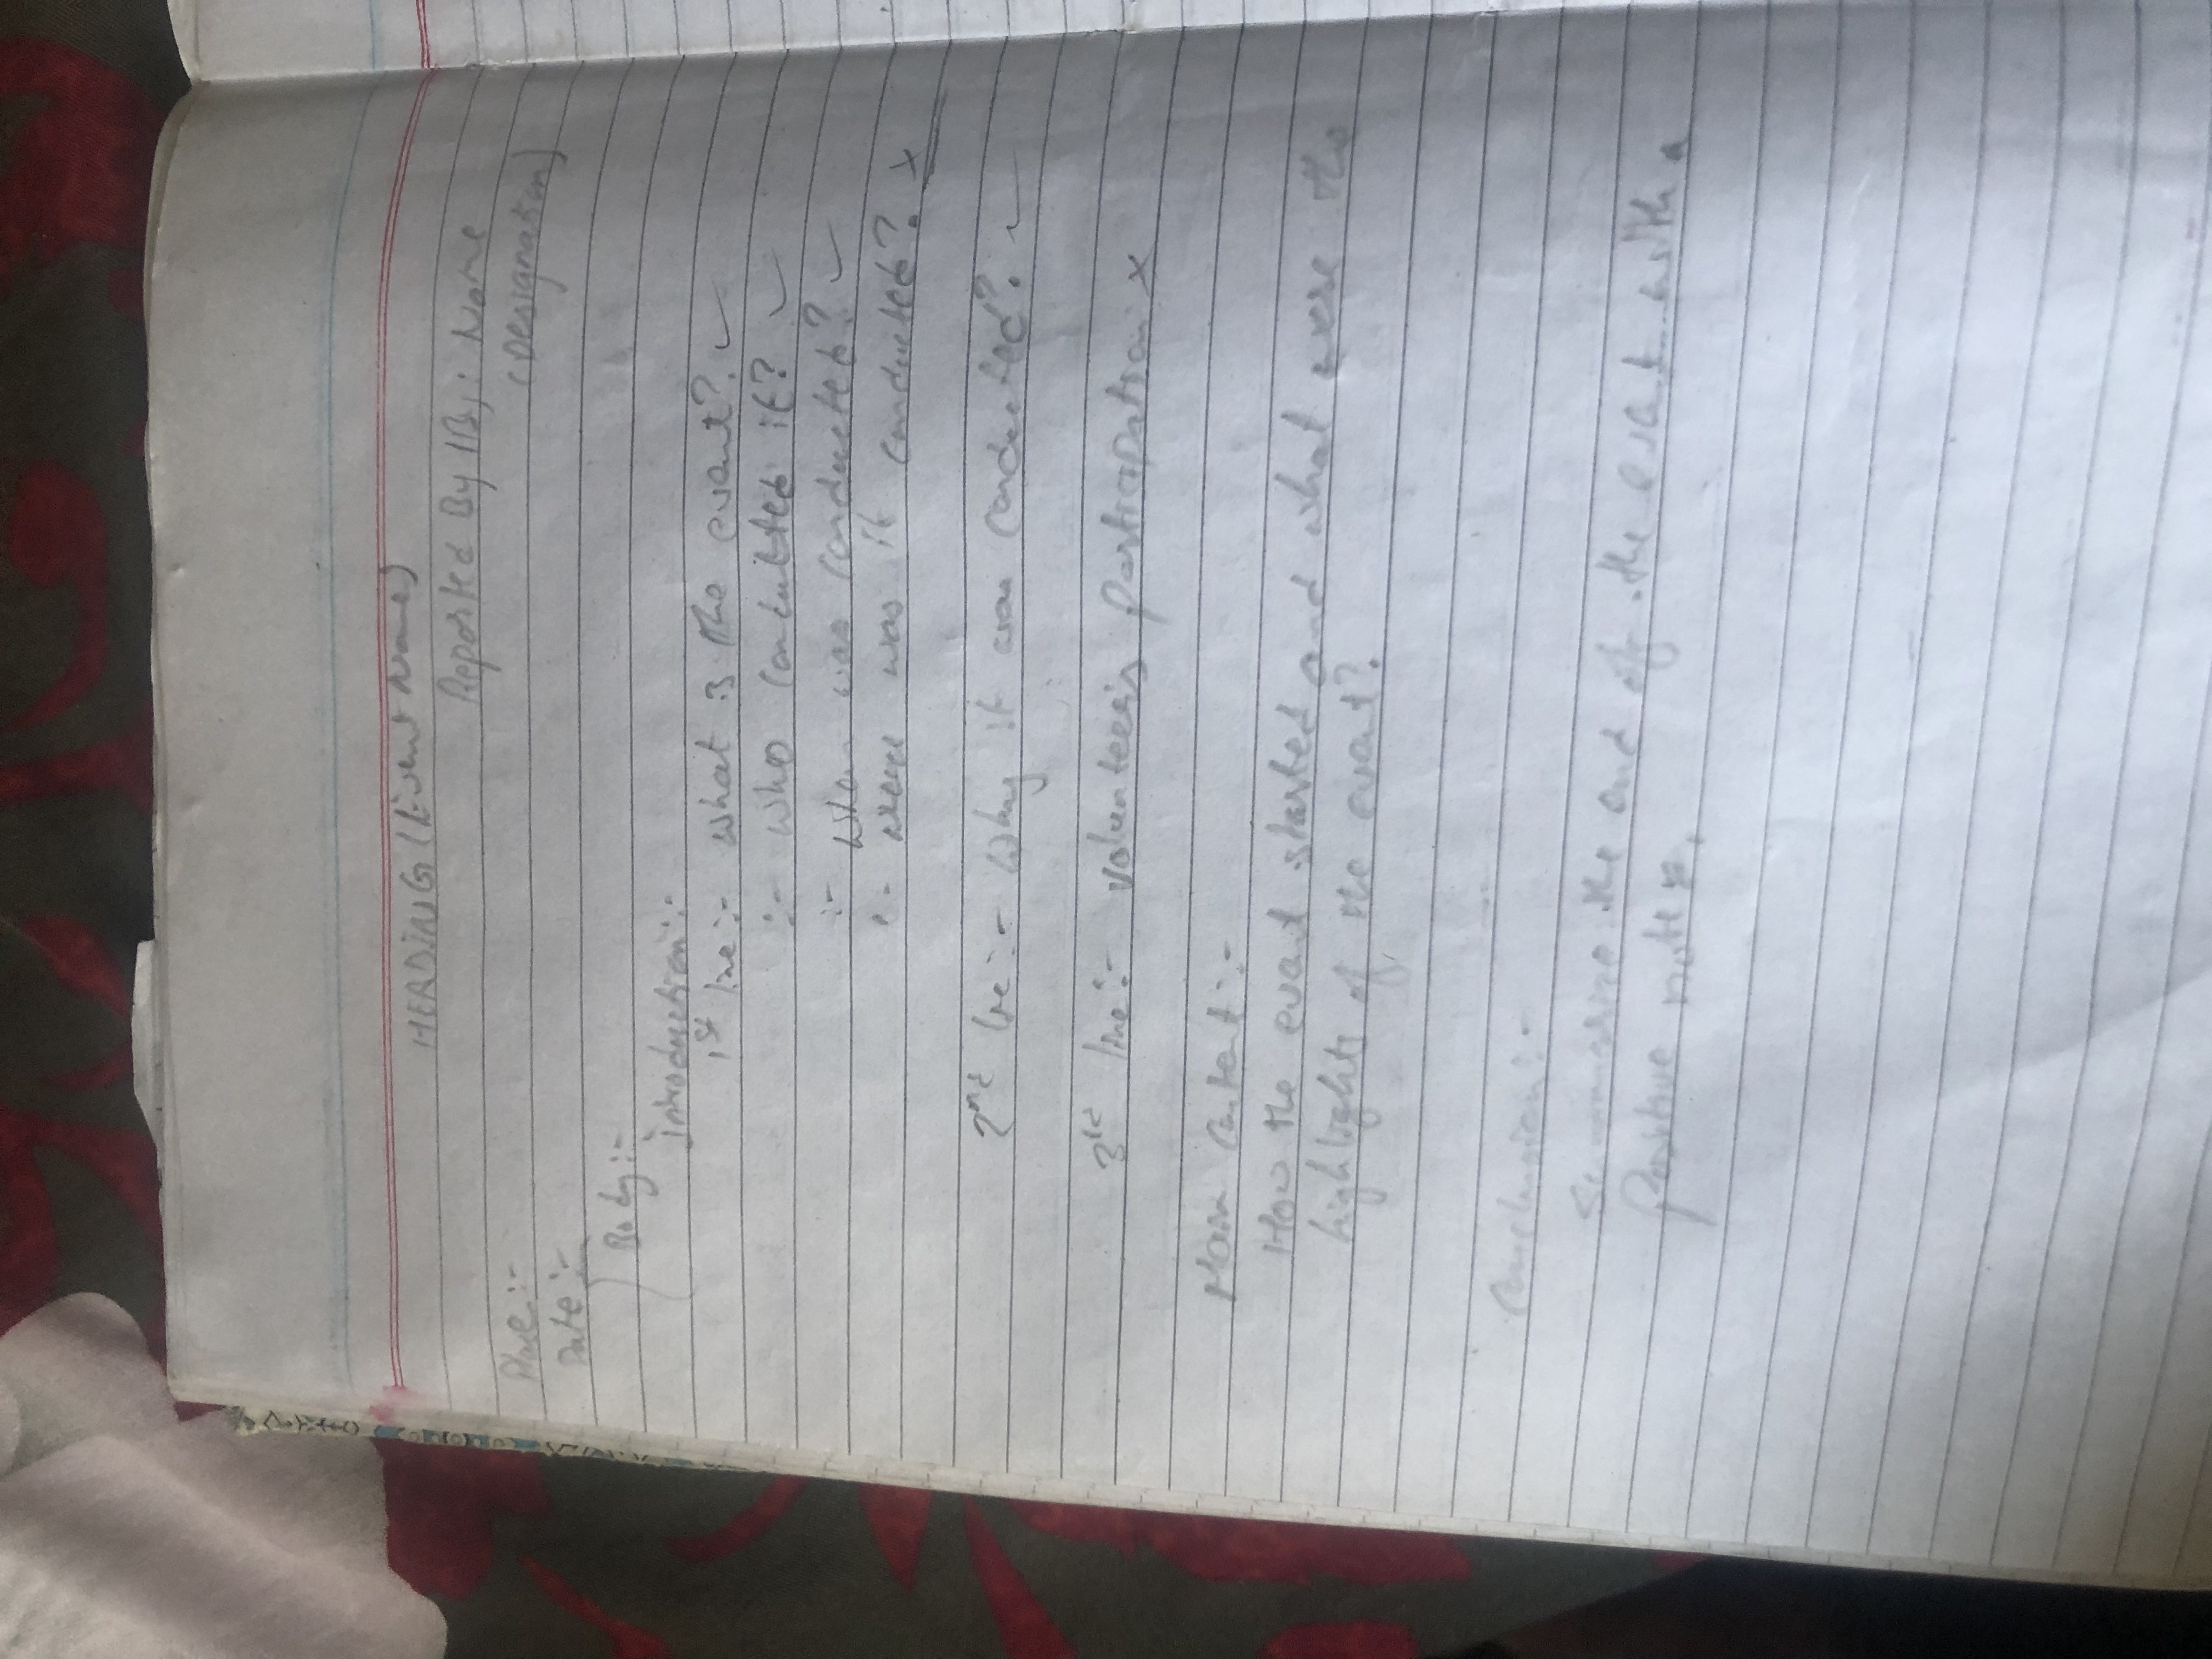 HEADING (Event Name)
Reported By / By: Name
(Designation)
Place :-
Date :-
Body :-
Introduction :-
1st line :- what is the event? ✓
:- who conducted it? ✓
:- when was conducted? ✓
:- where was it conducted? x
2nd line :- Why it was conducted? ✓
3rd line :- volunteer's participation x
Main Content :-
How the event started and what were the
highlights of the event?
Conclusion :-
Summarise the end of the event with a
positive note.